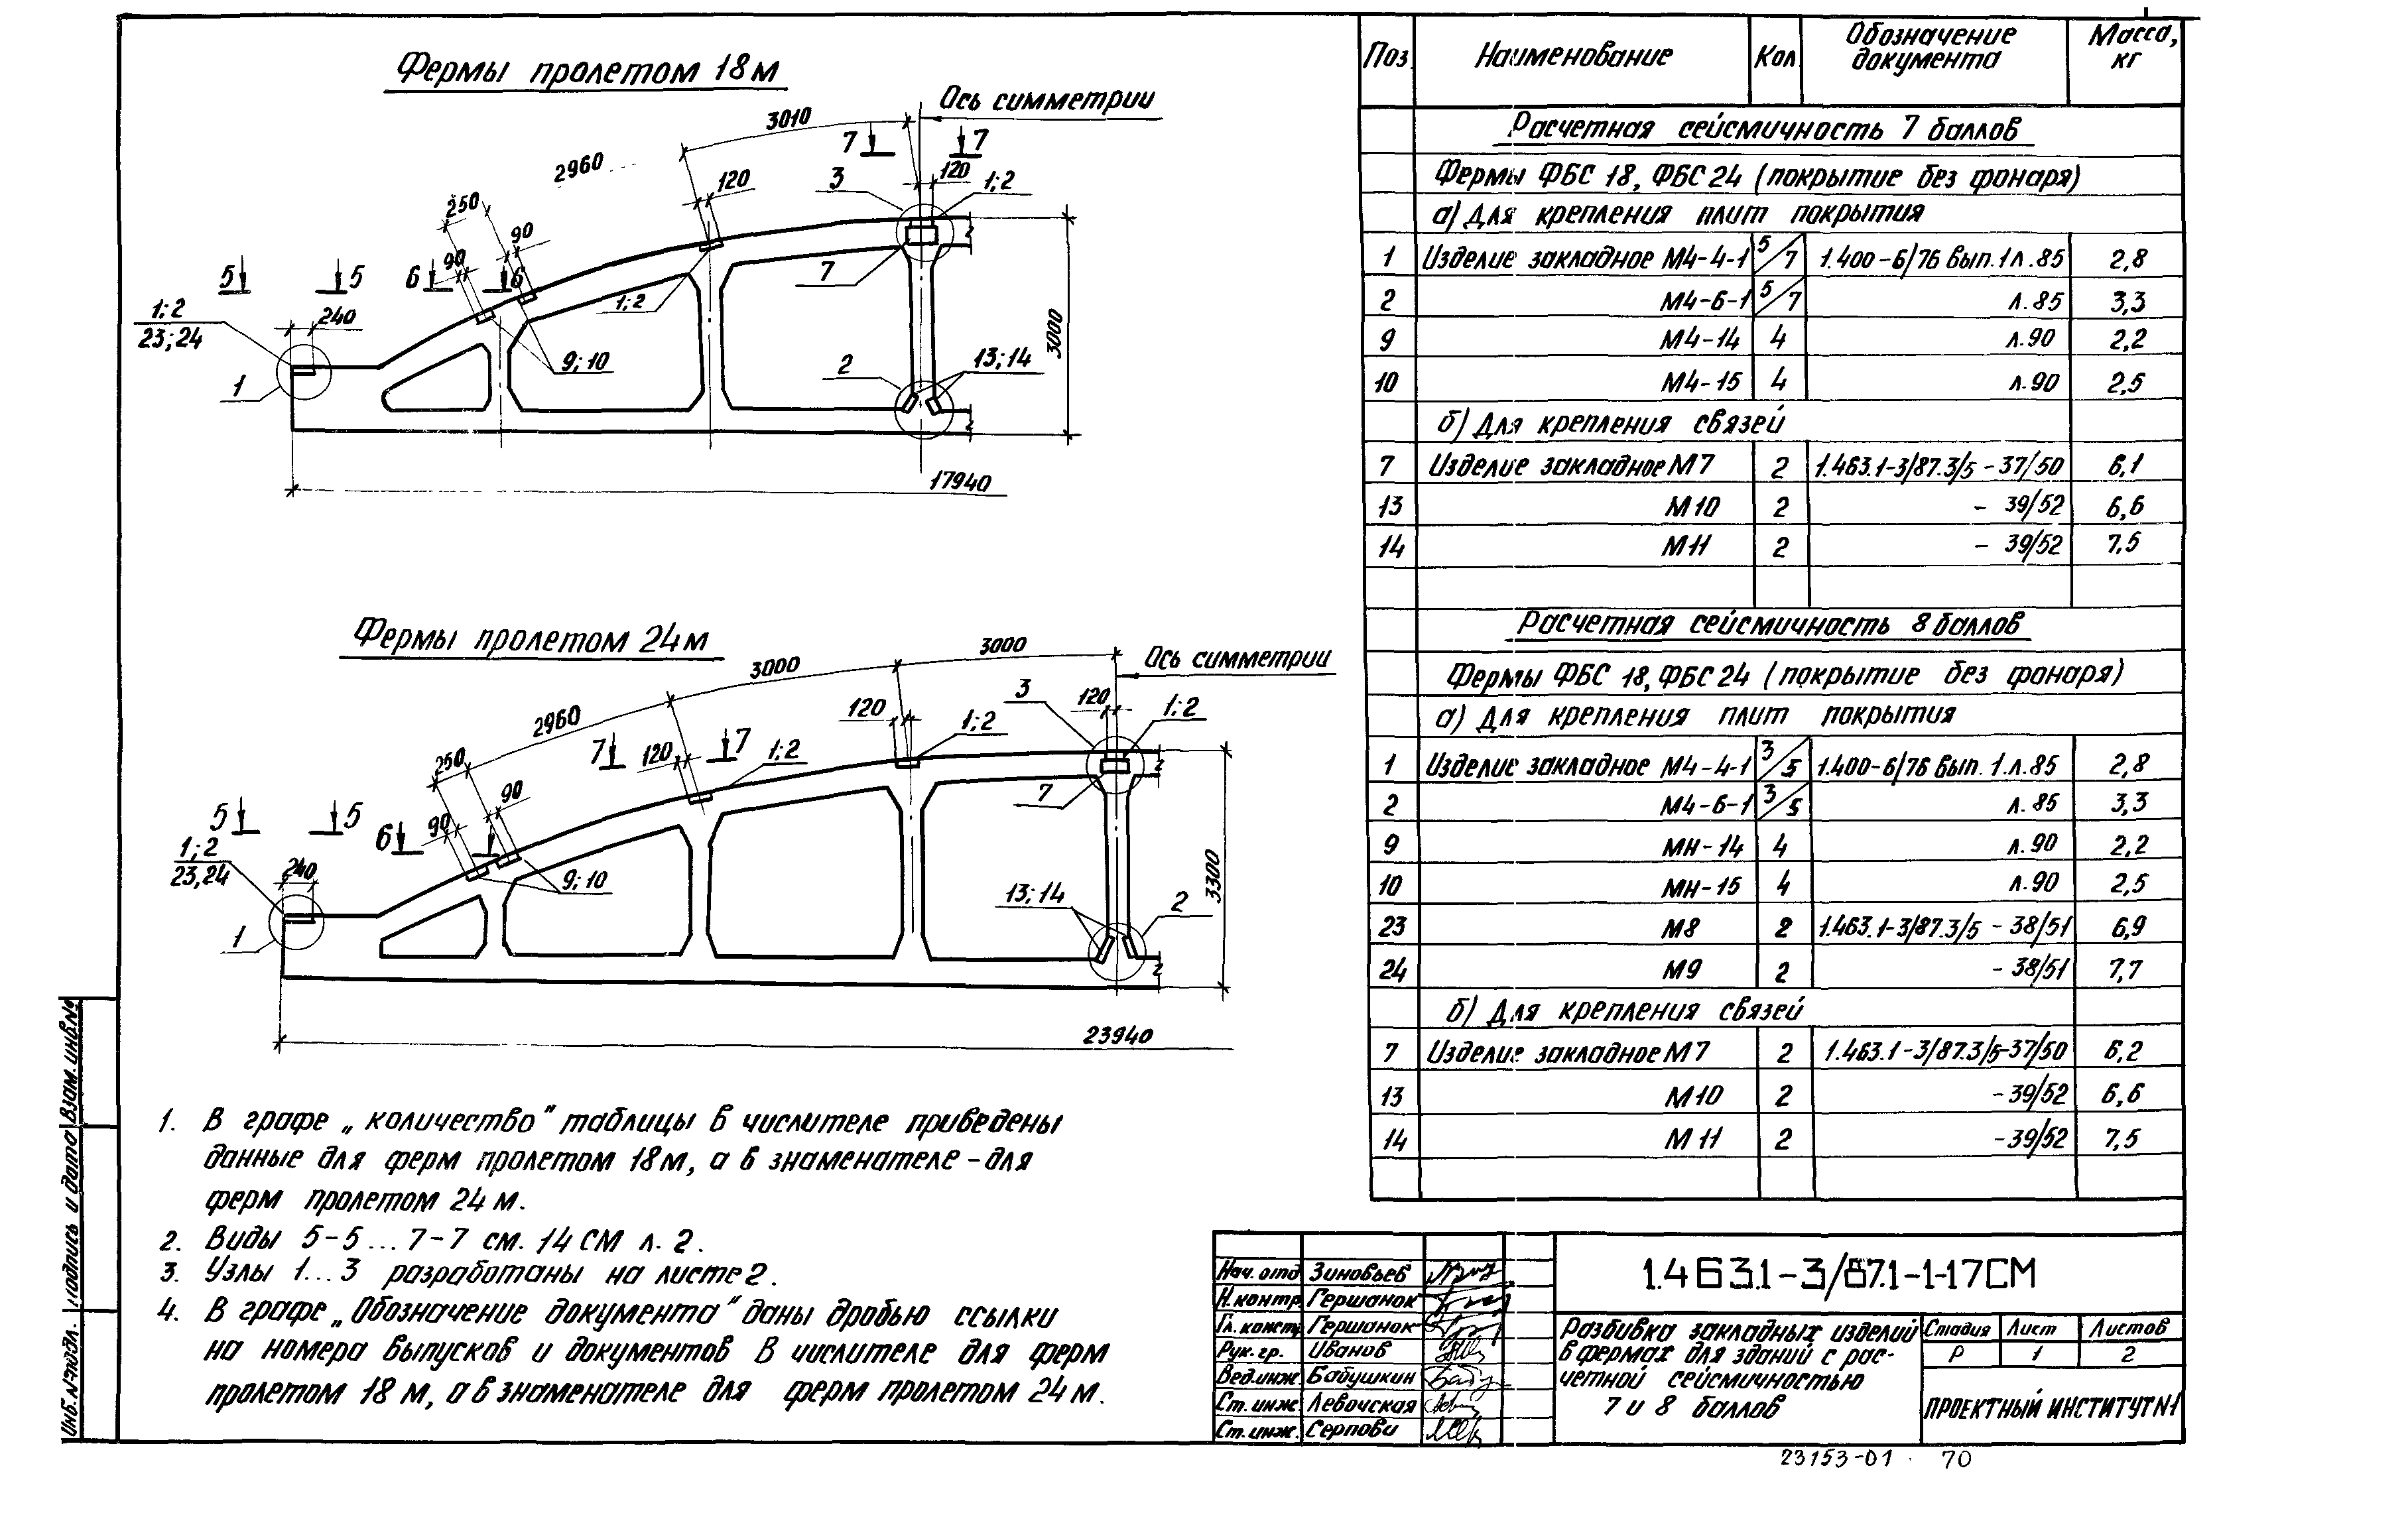 Фермы пролетом 18м
Ось симметрии
3010
7 7
2960
120
3
120
1;2
250
90
90
5 5
6 6
7
1;2
1;2
23;24
240
3000
9;10
2
13;14
1
17940
Фермы пролетом 24м
3000
3000
Ось симметрии
3
120
1;2
2960
120
1;2
7 7
120
1;2
250
90
90
7
5 5
6
1;2
23,24
240
9;10
3300
13;14
2
1
23940
1. В графе „количество" таблицы в числителе приведены
данные для ферм пролетом 18м, а в знаменателе - для
ферм пролетом 24 м.
2. Виды 5-5 ... 7-7 см. 14 СМ л. 2.
3. Узлы 1...3 разработаны на листе 2.
4. В графе „Обозначение документа" даны дробью ссылки
на номера выпусков и документов В числителе для ферм
пролетом 18 м, а в знаменателе для ферм пролетом 24 м.
Поз. Наименование Кол Обозначение документа Масса, кг
Расчетная сейсмичность 7 баллов
Фермы ФБС 18, ФБС 24 (покрытие без фонаря)
а) Для крепления плит покрытия
1 Изделие закладное М4-4-1 5/7 1.400-6/76 вып.1 л.85 2,8
2 М4-6-1 5/7 л.85 3,3
9 М4-14 4 л.90 2,2
10 М4-15 4 л.90 2,5
б) Для крепления связей
7 Изделие закладное М7 2 1.463.1-3/87.3/5 -37/50 6,1
13 М10 2 - 39/52 6,6
14 М11 2 - 39/52 7,5
Расчетная сейсмичность 8 баллов
Фермы ФБС 18, ФБС 24 (покрытие без фонаря)
а) Для крепления плит покрытия
1 Изделие закладное М4-4-1 3/5 1.400-6/76 вып. 1.л.85 2,8
2 М4-6-1 3/5 л. 85 3,3
9 МН-14 4 л.90 2,2
10 МН-15 4 л.90 2,5
23 М8 2 1.463.1-3/87.3/5 - 38/51 6,9
24 М9 2 - 38/51 7,7
б) Для крепления связей
7 Изделие закладное М7 2 1.463.1-3/87.3/5-37/50 6,2
13 М10 2 -39/52 6,6
14 М11 2 -39/52 7,5
Нач. отд Зиновьев
Н.контр. Гершанок
Гл. констр. Гершанок
Рук. гр. Иванов
Вед.инж. Бабушкин
Ст. инж. Левочская
Ст. инж. Серпови
1.463.1-3/87.1-1-17СМ
Разбивка закладных изделий
в фермах для зданий с рас-
четной сейсмичностью
7 и 8 баллов
Стадия Лист Листов
Р 1 2
ПРОЕКТНЫЙ ИНСТИТУТ №1
Инб. № подл. Подпись и дата Взам. инв.№
23153-01 70